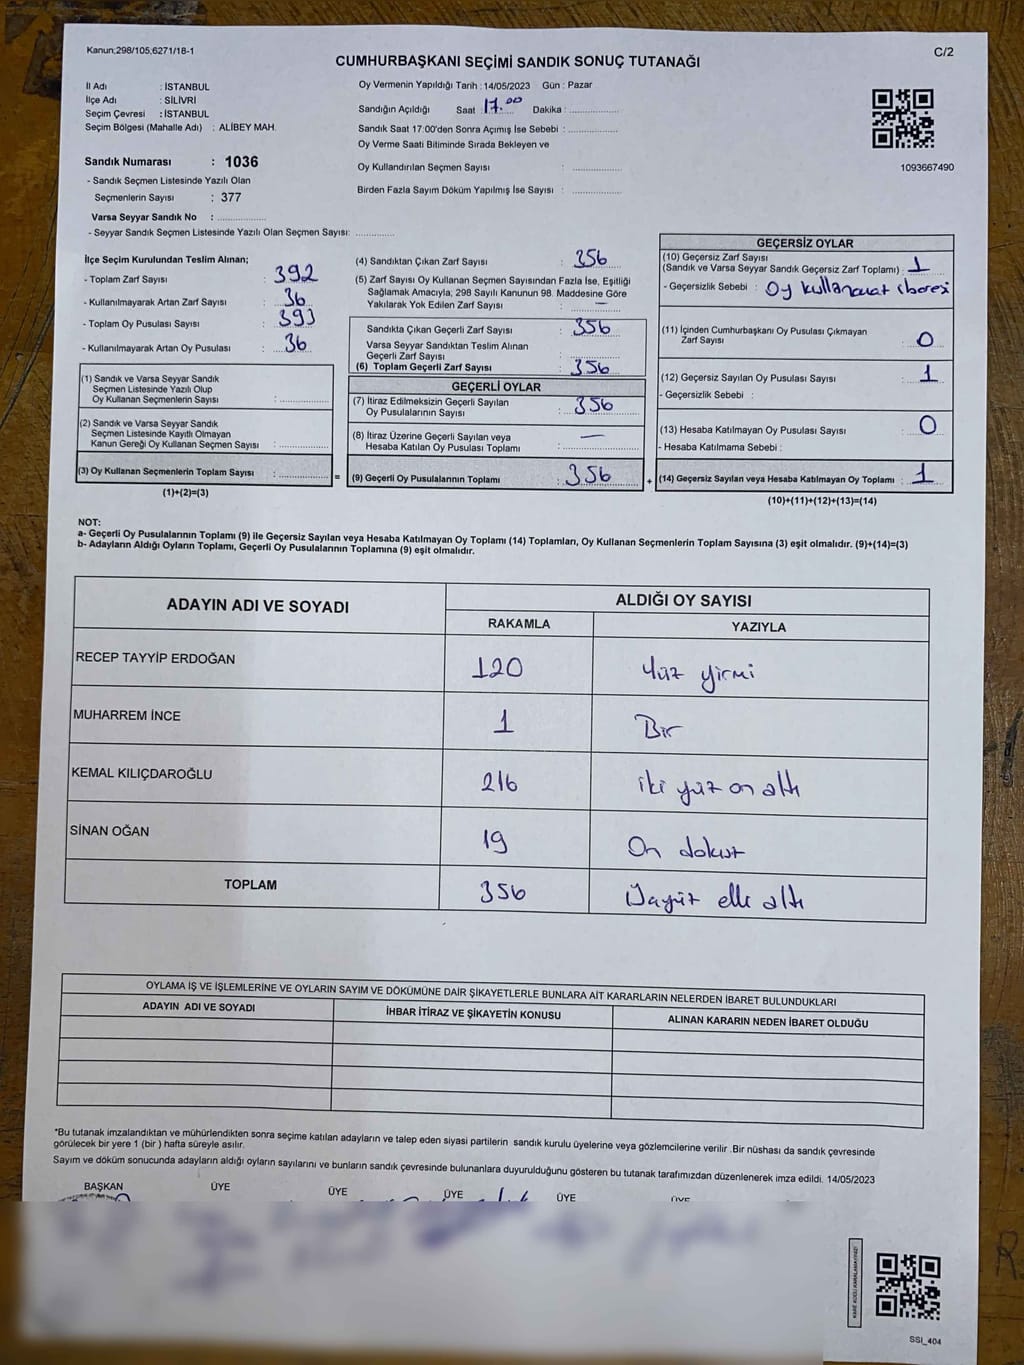 Kanun;298/105,6271/18-1
C/2
CUMHURBAŞKANI SEÇİMİ SANDIK SONUÇ TUTANAĞI
İl Adı : İSTANBUL
İlçe Adı : SİLİVRİ
Seçim Çevresi : İSTANBUL
Seçim Bölgesi (Mahalle Adı) : ALİBEY MAH.
Oy Vermenin Yapıldığı Tarih : 14/05/2023 Gün : Pazar
Sandığın Açıldığı Saat 17.00 Dakika : ....................
Sandık Saat 17:00'den Sonra Açımış İse Sebebi : ....................
Oy Verme Saati Bitiminde Sırada Bekleyen ve
Oy Kullandırılan Seçmen Sayısı : ....................
Birden Fazla Sayım Döküm Yapılmış İse Sayısı : ....................
1093667490
Sandık Numarası : 1036
- Sandık Seçmen Listesinde Yazılı Olan
Seçmenlerin Sayısı : 377
Varsa Seyyar Sandık No : ....................
- Seyyar Sandık Seçmen Listesinde Yazılı Olan Seçmen Sayısı: ................
İlçe Seçim Kurulundan Teslim Alınan;
- Toplam Zarf Sayısı : 392
- Kullanılmayarak Artan Zarf Sayısı : 36
- Toplam Oy Pusulası Sayısı : 393
- Kullanılmayarak Artan Oy Pusulası : 36
(1) Sandık ve Varsa Seyyar Sandık
Seçmen Listesinde Yazılı Olup
Oy Kullanan Seçmenlerin Sayısı : ................
(2) Sandık ve Varsa Seyyar Sandık
Seçmen Listesinde Kayıtlı Olmayan
Kanun Gereği Oy Kullanan Seçmen Sayısı : ................
(3) Oy Kullanan Seçmenlerin Toplam Sayısı : ................
(1)+(2)=(3)
(4) Sandıktan Çıkan Zarf Sayısı : 356
(5) Zarf Sayısı Oy Kullanan Seçmen Sayısından Fazla İse, Eşitliği
Sağlamak Amacıyla, 298 Sayılı Kanunun 98. Maddesine Göre
Yakılarak Yok Edilen Zarf Sayısı : —
Sandıkta Çıkan Geçerli Zarf Sayısı : 356
Varsa Seyyar Sandıktan Teslim Alınan
Geçerli Zarf Sayısı : ................
(6) Toplam Geçerli Zarf Sayısı : 356
GEÇERLİ OYLAR
(7) İtiraz Edilmeksizin Geçerli Sayılan
Oy Pusulalarının Sayısı : 356
(8) İtiraz Üzerine Geçerli Sayılan veya
Hesaba Katılan Oy Pusulası Toplamı : —
= (9) Geçerli Oy Pusulalarının Toplamı : 356
GEÇERSİZ OYLAR
(10) Geçersiz Zarf Sayısı
(Sandık ve Varsa Seyyar Sandık Geçersiz Zarf Toplamı) : 1
- Geçersizlik Sebebi : Oy kullanmat ibaresi
(11) İçinden Cumhurbaşkanı Oy Pusulası Çıkmayan
Zarf Sayısı : 0
(12) Geçersiz Sayılan Oy Pusulası Sayısı : 1
- Geçersizlik Sebebi :
(13) Hesaba Katılmayan Oy Pusulası Sayısı : 0
- Hesaba Katılmama Sebebi :
+ (14) Geçersiz Sayılan veya Hesaba Katılmayan Oy Toplamı : 1
(10)+(11)+(12)+(13)=(14)
NOT:
a- Geçerli Oy Pusulalarının Toplamı (9) ile Geçersiz Sayılan veya Hesaba Katılmayan Oy Toplamı (14) Toplamları, Oy Kullanan Seçmenlerin Toplam Sayısına (3) eşit olmalıdır. (9)+(14)=(3)
b- Adayların Aldığı Oyların Toplamı, Geçerli Oy Pusulalarının Toplamına (9) eşit olmalıdır.
ADAYIN ADI VE SOYADI ALDIĞI OY SAYISI
RAKAMLA YAZIYLA
RECEP TAYYİP ERDOĞAN 120 Yüz yirmi
MUHARREM İNCE 1 Bir
KEMAL KILIÇDAROĞLU 216 iki yüz on altı
SİNAN OĞAN 19 On dokuz
TOPLAM 356 Üçyüz elli altı
OYLAMA İŞ VE İŞLEMLERİNE VE OYLARIN SAYIM VE DÖKÜMÜNE DAİR ŞİKAYETLERLE BUNLARA AİT KARARLARIN NELERDEN İBARET BULUNDUKLARI
ADAYIN ADI VE SOYADI İHBAR İTİRAZ VE ŞİKAYETİN KONUSU ALINAN KARARIN NEDEN İBARET OLDUĞU
*Bu tutanak imzalandıktan ve mühürlendikten sonra seçime katılan adayların ve talep eden siyasi partilerin sandık kurulu üyelerine veya gözlemcilerine verilir .Bir nüshası da sandık çevresinde
görülecek bir yere 1 (bir ) hafta süreyle asılır.
Sayım ve döküm sonucunda adayların aldığı oyların sayılarını ve bunların sandık çevresinde bulunanlara duyurulduğunu gösteren bu tutanak tarafımızdan düzenlenerek imza edildi. 14/05/2023
BAŞKAN ÜYE ÜYE ÜYE ÜYE ÜYE
SSI_404